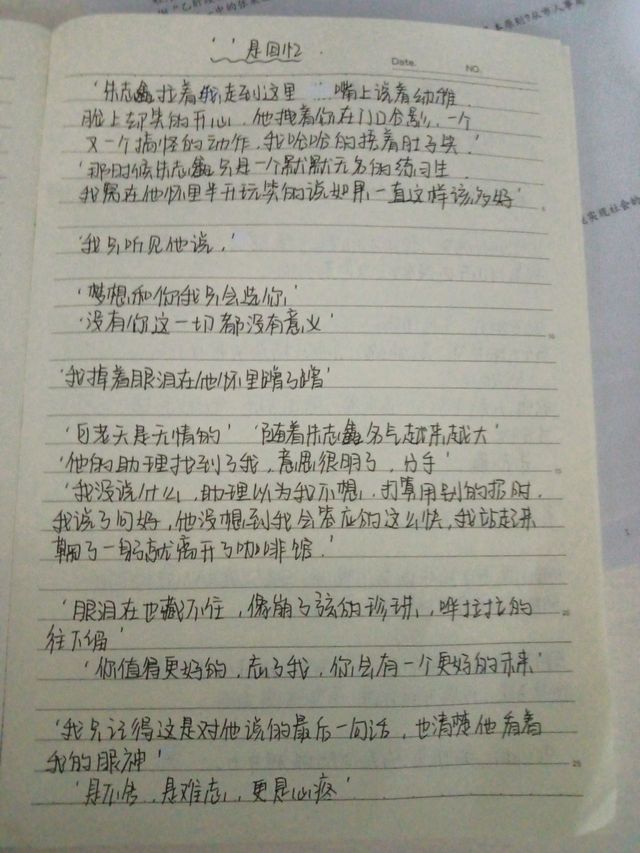 ' ' 是回忆
Date.
NO.
'朱志鑫拉着我走到这里 嘴上说着幼稚
脸上却笑的开心, 他拽着你在门口合影, 一个
又一个搞怪的动作, 我哈哈的捂着肚子笑.'
'那时候朱志鑫只是一个默默无名的练习生
我窝在他怀里半开玩笑的说如果一直这样该多好'
'我只听见他说,'
'梦想和你我只会选你,'
'没有你这一切都没有意义'
'我掉着眼泪在他怀里蹭了蹭'
'可老天是无情的' '随着朱志鑫名气越来越大'
'他的助理找到了我, 意思很明了, 分手'
'我没说什么, 助理以为我不想, 打算用别的招时,
我说了句好, 他没想到我会答应的这么快, 我站起来
鞠了一躬就离开了咖啡馆.'
'眼泪在也藏不住, 像崩了弦的珍珠, 哗拉拉的
往下掉'
'你值得更好的, 忘了我, 你会有一个更好的未来'
'我只记得这是对他说的最后一句话, 也清楚他看着
我的眼神'
'是不舍, 是难忘, 更是心疼'